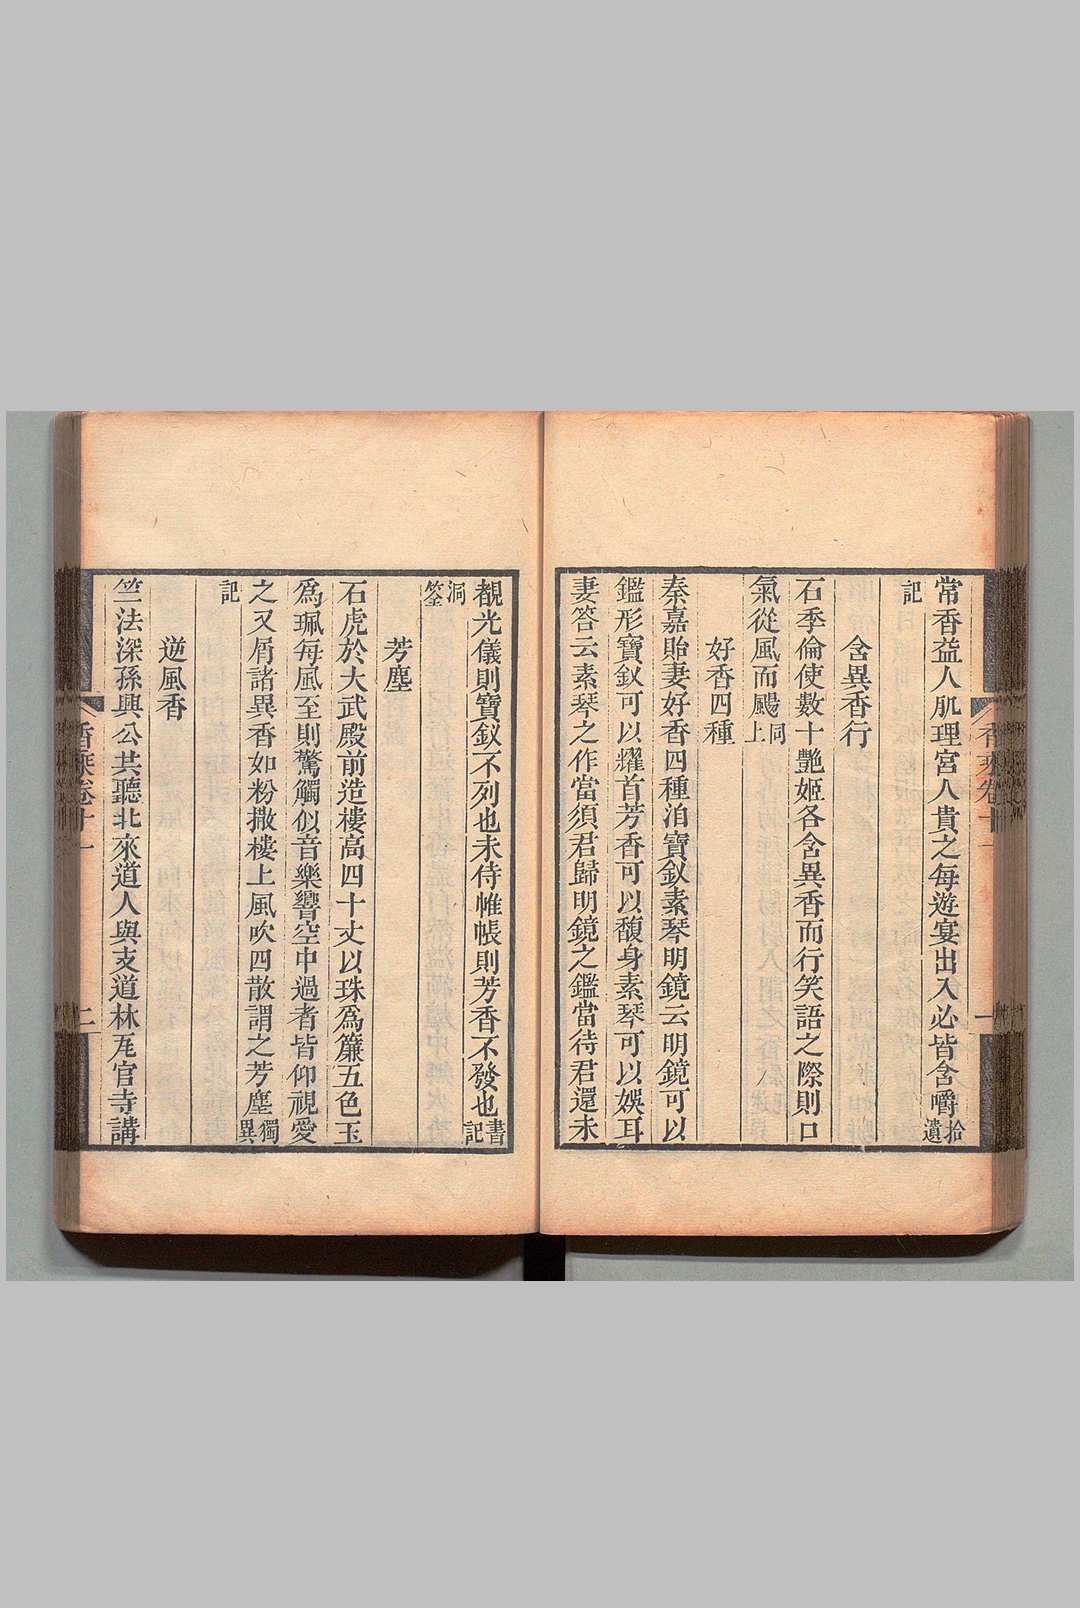 常香益人肌理宮人貴之每遊宴出入必皆含嚼拾遺
記
含異香行
石季倫使數十艷姬各含異香而行笑語之際則口
氣從風而颺同上
好香四種
秦嘉貽妻好香四種洎寶釵素琴明鏡云明鏡可以
鑑形寶釵可以耀首芳香可以馥身素琴可以娛耳
妻答云素琴之作當須君歸明鏡之鑑當待君還未
覩光儀則寶釵不列也未侍帷帳則芳香不發也書記
洞筌
芳塵
石虎於大武殿前造樓高四十丈以珠為簾五色玉
為珮每風至則驚觸似音樂響空中過者皆仰視愛
之又屑諸異香如粉撒樓上風吹四散謂之芳塵獨異
記
逆風香
竺法深孫興公共聽北來道人與支道林瓦官寺講
香乘卷十一
一
香乘卷十一
二